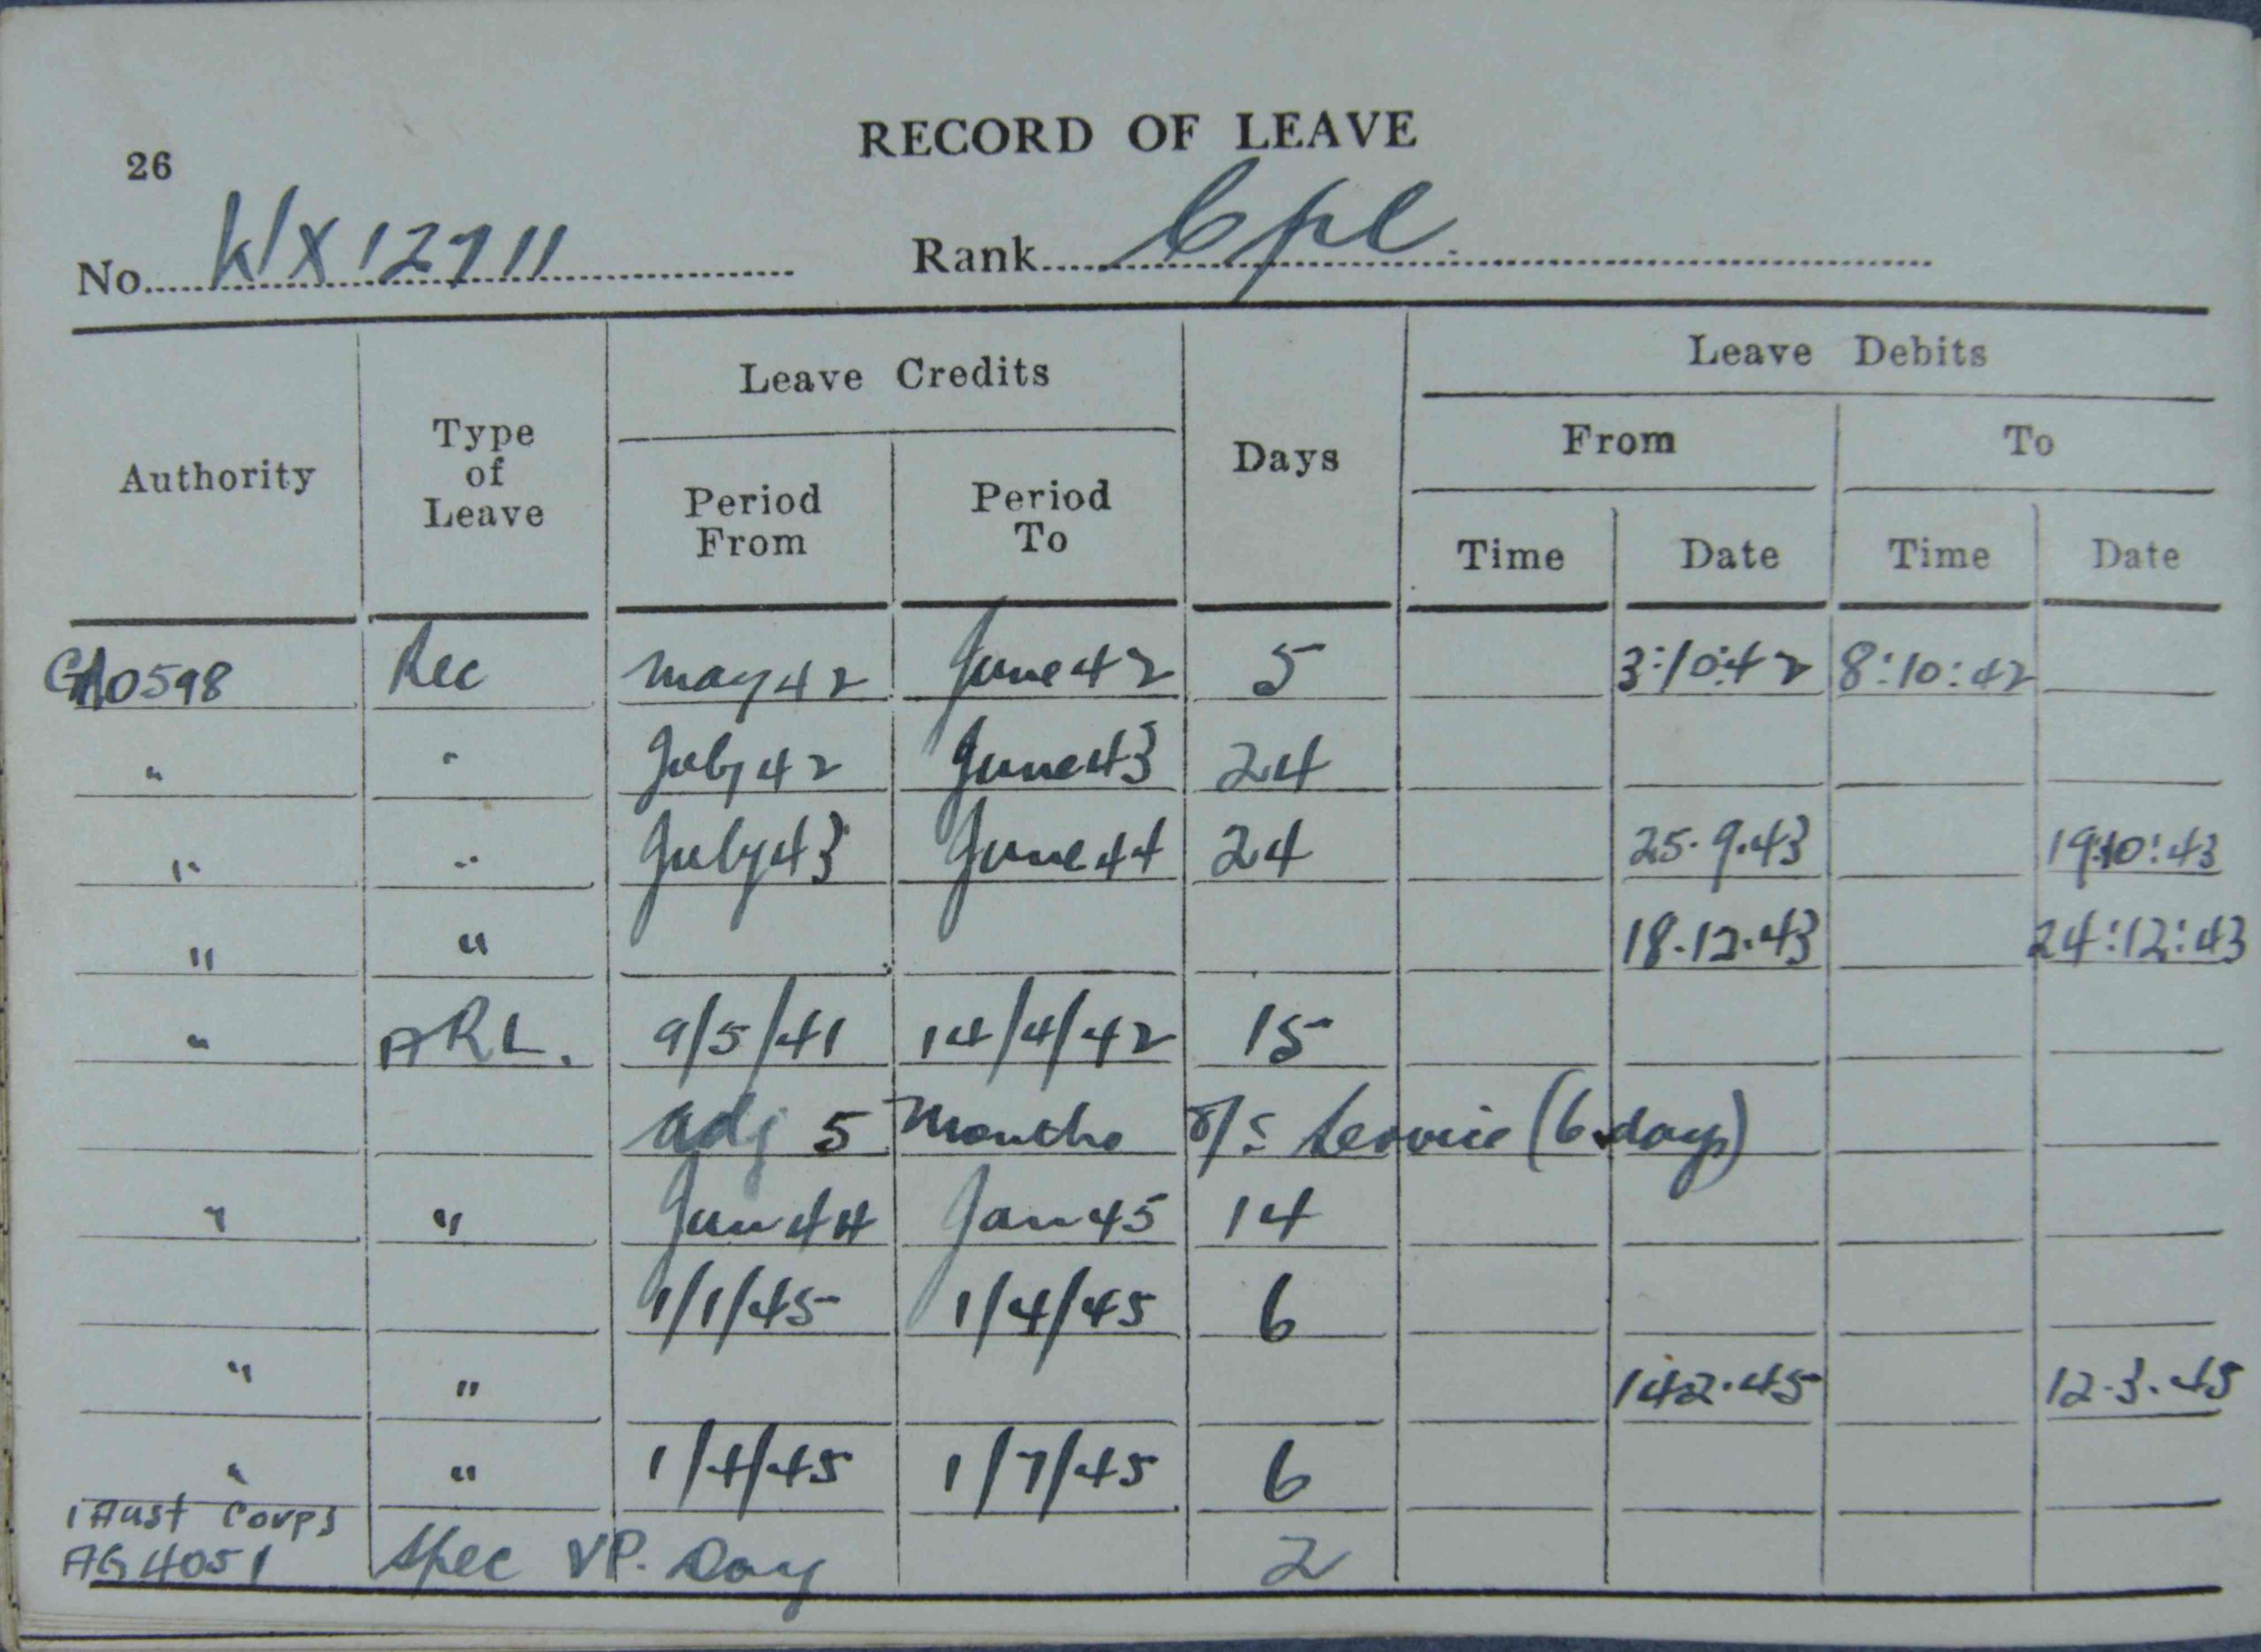 26
RECORD OF LEAVE
No. WX12711 Rank Cpl.
Leave Credits Leave Debits
Authority Type of Leave Period From Period To Days From To
Time Date Time Date
GRO598 Rec May 42 June 42 5 3:10:42 8:10:42
" " July 42 June 43 24
" " July 43 June 44 24 25.9.43 19:10:43
" " 18.12.43 24:12:43
" ARL. 9/5/41 14/4/42 15
adj 5 Months O/S Service (6 days)
" " Jun 44 Jan 45 14
1/1/45 1/4/45 6
" " 14.2.45 12.3.45
" " 1/4/45 1/7/45 6
1 Aust Corps
AG4051 Spec VP. Day 2